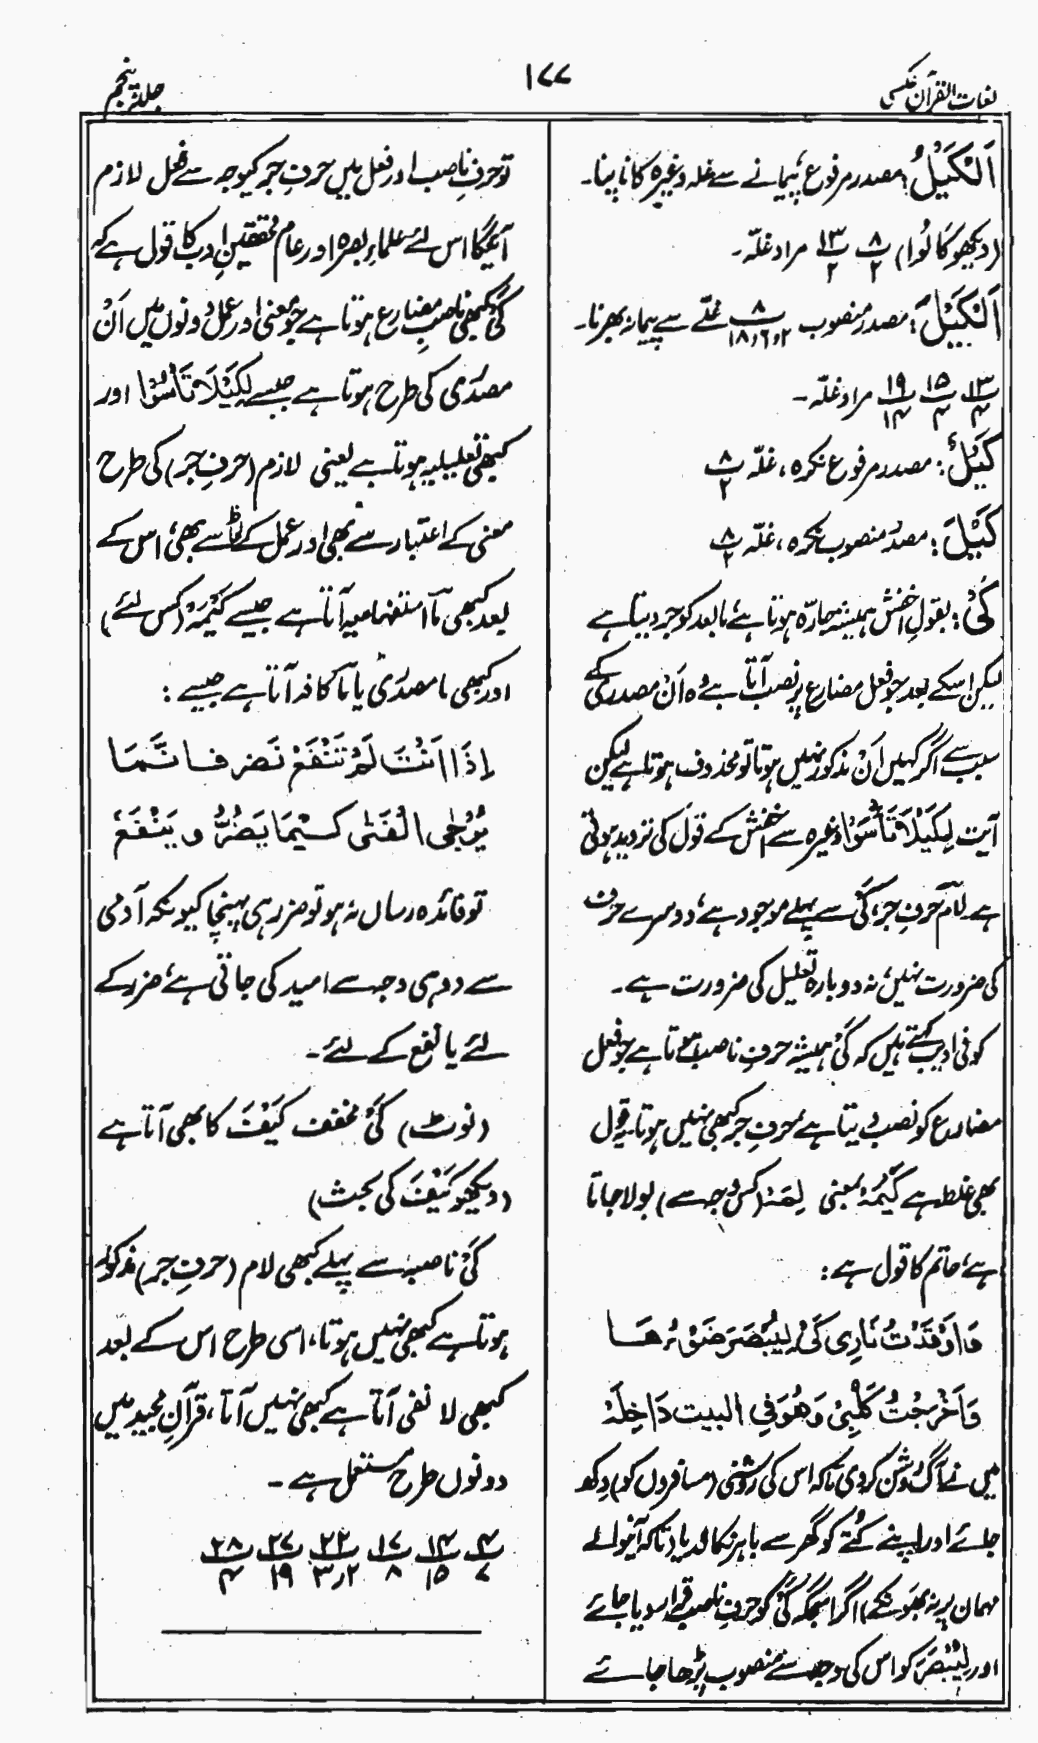 لغات القرآن عکسی
۱۷۷
جلد پنجم
اَلْکَیْلُ: مصدر مرفوع، پیمانے سے غلہ وغیرہ کا ناپنا۔
(دیکھو کَالُوا) ۸/۲ ۱۳/۲ مراد غلّہ۔
اَلْکَیْلَ: مصدر منصوب ۸/۲و۶و۱۸ غلّے سے پیمانہ بھرنا۔
۱۳/۴ ۱۵/۴ ۱۹/۱۴ مراد غلّہ۔
کَیْلٌ: مصدر مرفوع نکرہ، غلّہ ۸/۲
کَیْلَ: مصدر منصوب نکرہ، غلّہ ۸/۲
کَیْ: بقولِ اخفش ہمیشہ جارّہ ہوتا ہے، مابعد کو جر دیتا ہے
لیکن اسکے بعد جو فعل مضارع پر نصب آتا ہے وہ اَنْ مصدری کے
سبب سے اگر کہیں اَنْ مذکور نہیں ہوتا تو محذوف ہوتا ہے لیکن
آیت لِکَیْلَا تَأْسَوْا وغیرہ سے اخفش کے قول کی تردید ہوتی
ہے لام حرفِ جر، کَیْ سے پہلے موجود ہے، دوسرے حرف
کی ضرورت نہیں، نہ دوبارہ تعلیل کی ضرورت ہے۔
کوفی ادیب کہتے ہیں کہ کَیْ ہمیشہ حرفِ ناصب ہوتا ہے جو فعل
مضارع کو نصب دیتا ہے حرفِ جر کبھی نہیں ہوتا۔ یہ قول
بھی غلط ہے کَیْمَهْ بمعنی لِمَهْ (کس وجہ سے) بولا جاتا
ہے، حاتم کا قول ہے:
فَاَوْقَدْتُ نَارِی کَیْ لِیُبْصَرَ ضَوْءُھَا
وَاَخْرَجْتُ کَلْبِیْ وَھُوَ فِی البیت دَاخِلَهْ
میں نے آگ روشن کر دی تاکہ اس کی روشنی (مسافروں کو) دِکھ
جائے اور اپنے کُتّے کو گھر سے باہر نکال دیا (تاکہ آنیوالے
مہمان پر نہ بھونکے) اگر اسجگہ کَیْ کو حرفِ ناصب قرار دیا جائے
اور لِیُبْصَرَ کو اس کی وجہ سے منصوب پڑھا جائے
تو حرفِ ناصب اور فعل میں حرفِ جر کیوجہ سے فصل لازم
آئیگا اس لئے علماءِ بصرہ اور عام محققینِ ادب کا قول ہے کہ
کَیْ کبھی ناصبِ مضارع ہوتا ہے جو معنی اور عمل دونوں میں اَنْ
مصدری کی طرح ہوتا ہے جیسے لِکَیْلَا تَأْسَوْا اور
کبھی تعلیلیہ ہوتا ہے یعنی لازم (حرفِ جر) کی طرح
معنی کے اعتبار سے بھی اور عمل کے لحاظ سے بھی، اس کے
بعد کبھی مَا استفہامیہ آتا ہے جیسے کَیْمَهْ (کس لئے)
اور کبھی ما مصدری یا مَا کافہ آتا ہے جیسے:
اِذَا اَنْتَ لَمْ تَنْفَعْ فَضر فَاِنَّمَا
یُرْجٰی الْفَتٰی کَیْمَا یَضُرُّ و یَنْفَعُ
تو فائدہ رساں نہ ہو تو ضرر ہی پہنچا کیونکہ آدمی
سے دو ہی وجہ سے امید کی جاتی ہے، ضرر کے
لئے یا نفع کے لئے۔
(نوٹ) کَیْ مخفف کَیْفَ کا بھی آتا ہے
(دیکھو کَیْفَ کی بحث)
کَیْ ناصبہ سے پہلے کبھی لام (حرفِ جر) مذکور
ہوتا ہے کبھی نہیں ہوتا، اسی طرح اس کے بعد
کبھی لا نفی آتا ہے کبھی نہیں آتا، قرآن مجید میں
دونوں طرح مستعمل ہے۔
۴/۷ ۱۴/۱۵ ۱۷/۸ ۲۲/۲و۳ ۲۷/۱۹ ۲۸/۴